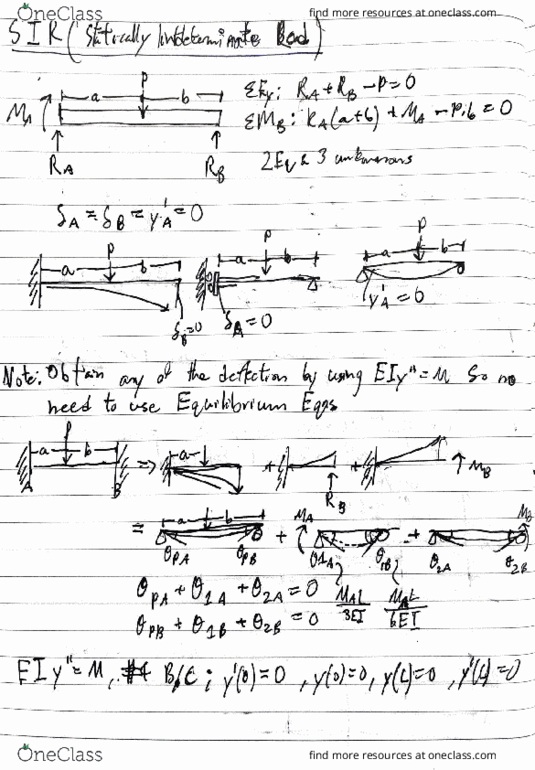 OneClass find more resources at oneclass.com
SIR (Statically Indeterminate Rod)
P
a b
MA
RA RB
ΣFy: RA + RB - P = 0
ΣMB: RA(a+b) + MA - P·b = 0
2 Eq & 3 unknowns
δA = δB = y'A = 0
P
a b
δB = 0
P
a b
δA = 0
P
a b
y'A = 0
Note: Obtain any of the deflection by using EIy" = M so no
need to use Equilibrium Eqs
P
a b
A B
=> a + + MB
RB
= a b + MA + MB
θPA θPB θ1A θ1B θ2A θ2B
θPA + θ1A + θ2A = 0 MAL/3EI MAL/6EI
θPB + θ1B + θ2B = 0
EIy" = M, #4 B.C: y'(0) = 0, y(0) = 0, y(L) = 0, y'(L) = 0
OneClass find more resources at oneclass.com